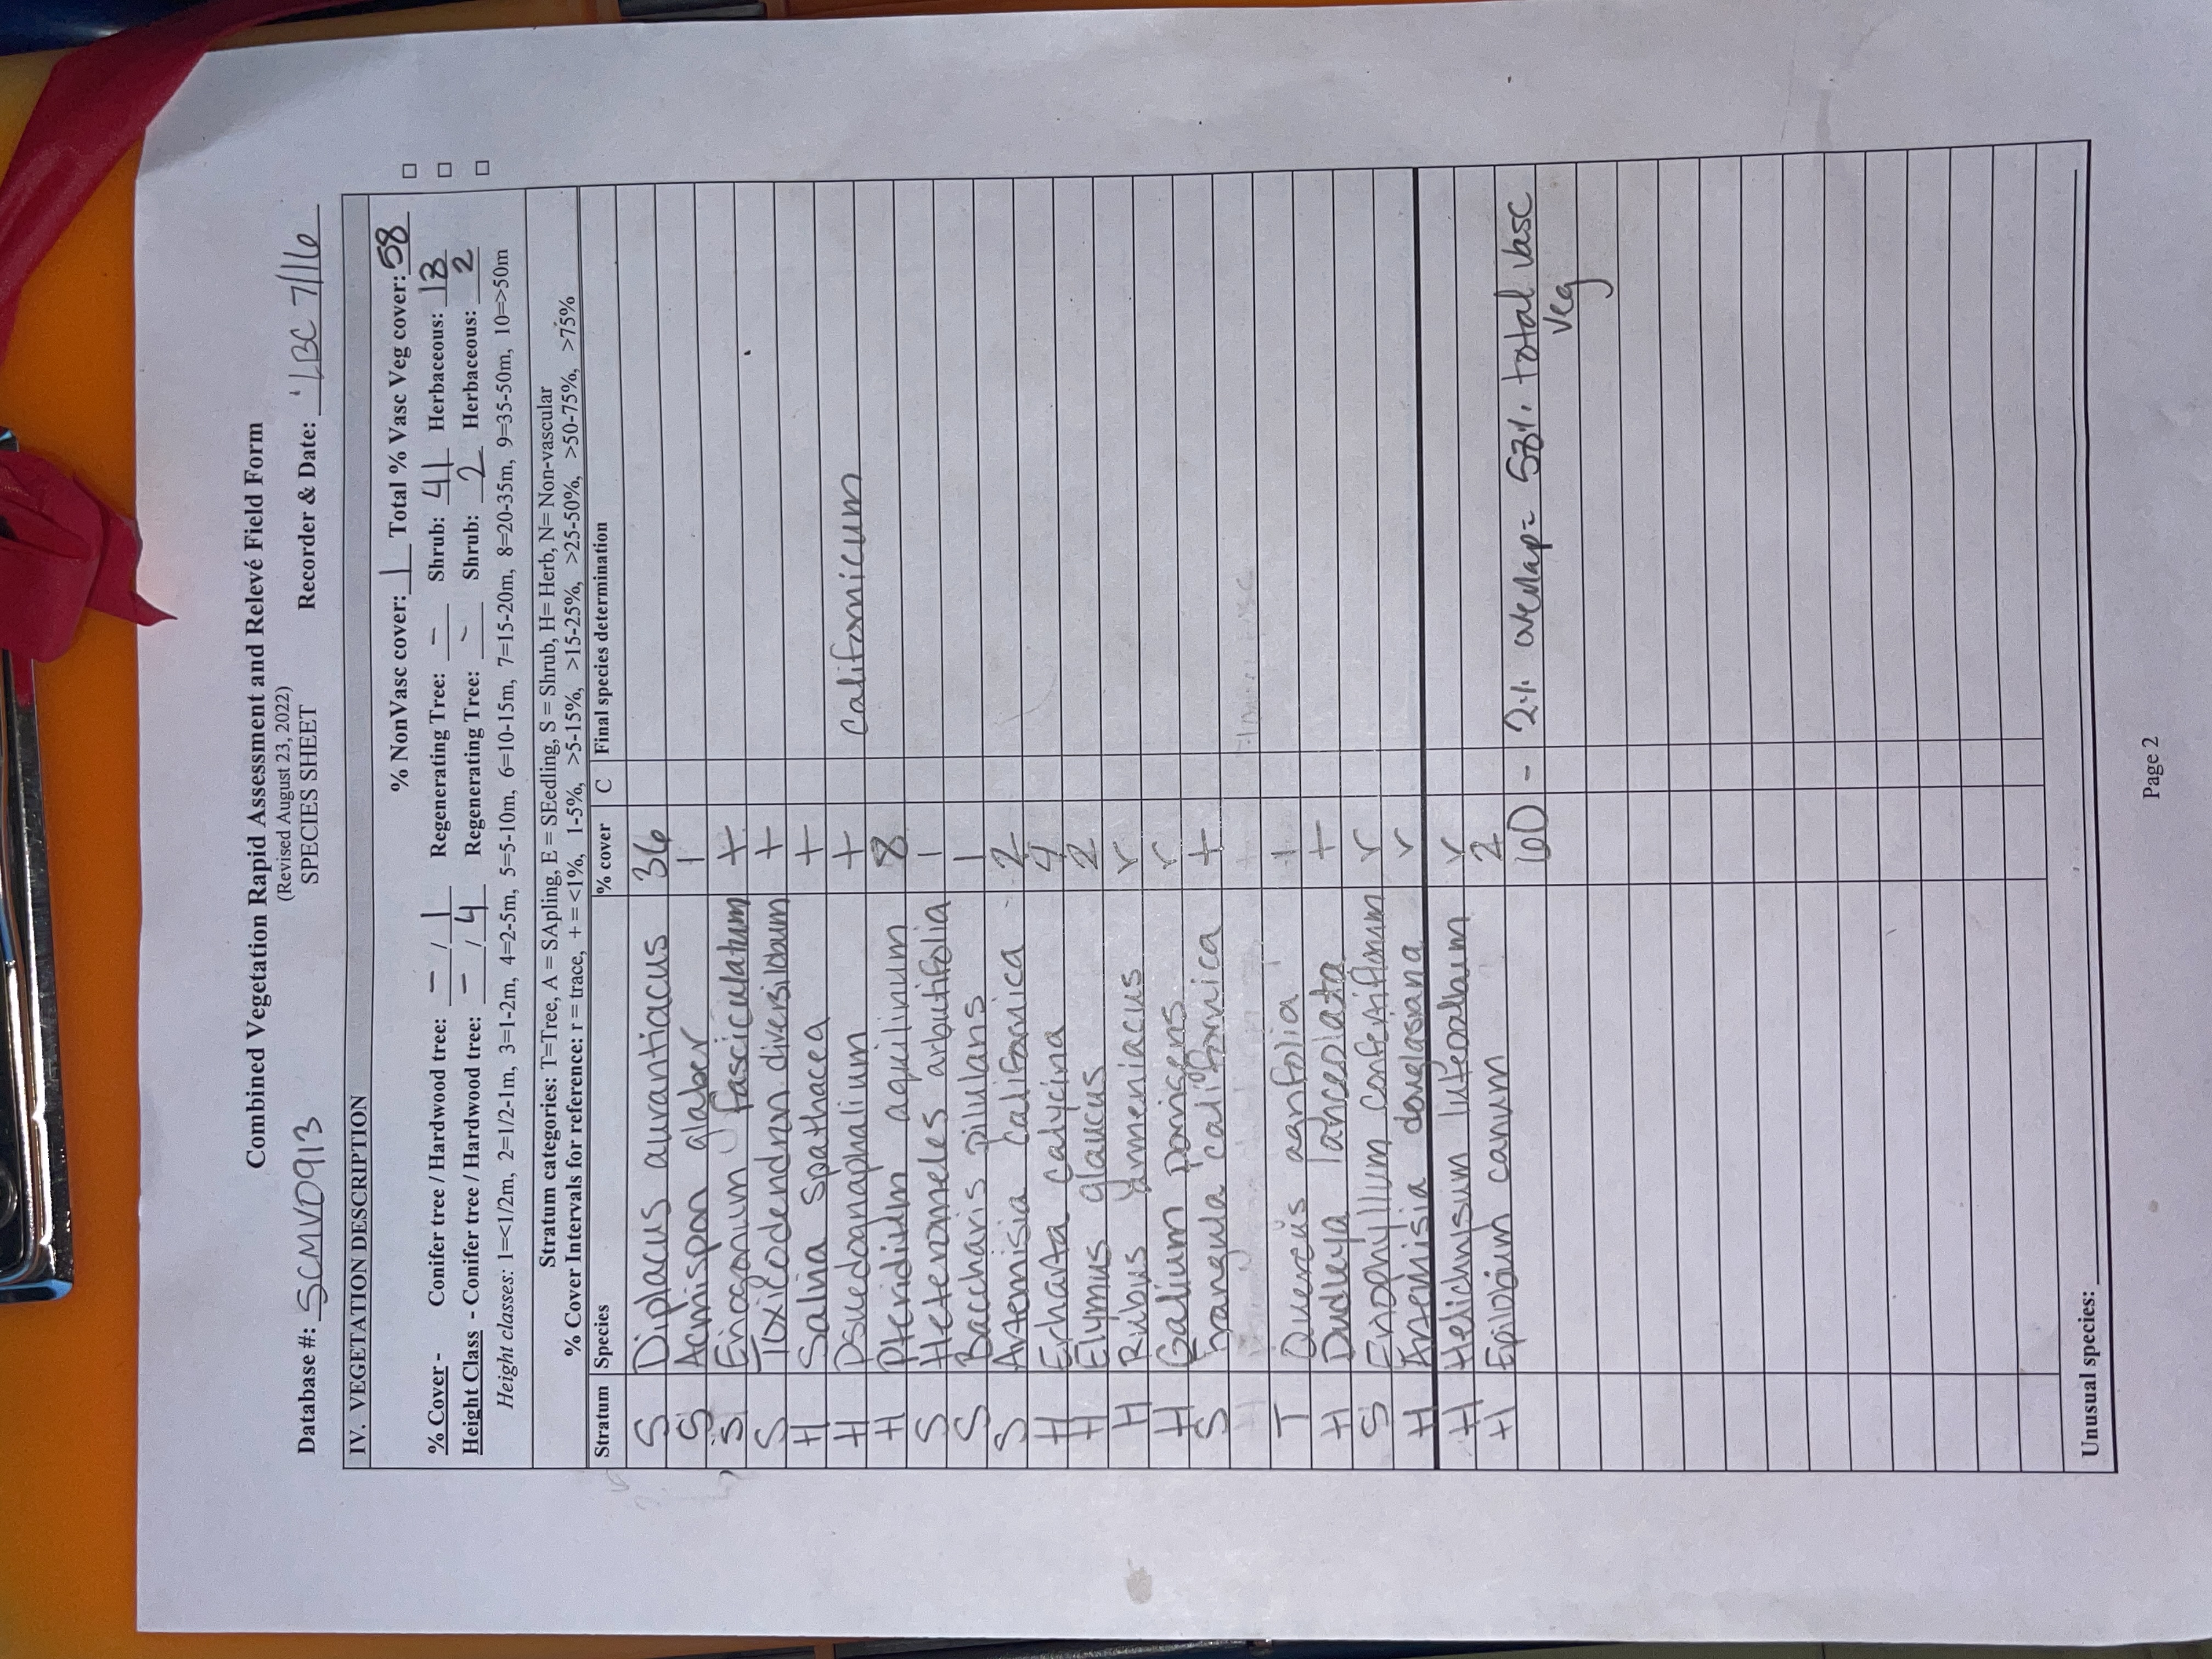 Combined Vegetation Rapid Assessment and Relevé Field Form
(Revised August 23, 2022)
SPECIES SHEET
Database #: SCMVD0913 Recorder & Date: LBC 7/16
IV. VEGETATION DESCRIPTION
% NonVasc cover: 1 Total % Vasc Veg cover: 58
% Cover - Conifer tree / Hardwood tree: - / 1 Regenerating Tree: - Shrub: 41 Herbaceous: 18
Height Class - Conifer tree / Hardwood tree: - / 4 Regenerating Tree: - Shrub: 2 Herbaceous: 2
Height classes: 1=<1/2m, 2=1/2-1m, 3=1-2m, 4=2-5m, 5=5-10m, 6=10-15m, 7=15-20m, 8=20-35m, 9=35-50m, 10=>50m
Stratum categories: T=Tree, A = SApling, E = SEedling, S = Shrub, H= Herb, N= Non-vascular
% Cover Intervals for reference: r = trace, + = <1%, 1-5%, >5-15%, >15-25%, >25-50%, >50-75%, >75%
Stratum Species % cover C Final species determination
S Diplacus aurantiacus 36
S Acmispon glaber 1
S Eriogonum fasciculatum +
S Toxicodendron diversilobum +
H Salvia spathacea +
H Psuedognaphalium + californicum
H Pteridium aquilinum 8
S Heteromeles arbutifolia 1
S Baccharis pilularis 1
S Artemisia californica 2
H Erharta calycina 4
H Elymus glaucus 2
H Rubus armeniacus r
H Galium porrigens r
S Frangula californica +
T Quercus agrifolia 1
H Dudleya lanceolata +
S Eriophyllum confertiflorum r
H Artemisia douglasiana r
H Helichrysum luteoalbum r
H Epilobium canum 2
60 - 2% overlap = 58% total vasc
veg
Unusual species:
Page 2